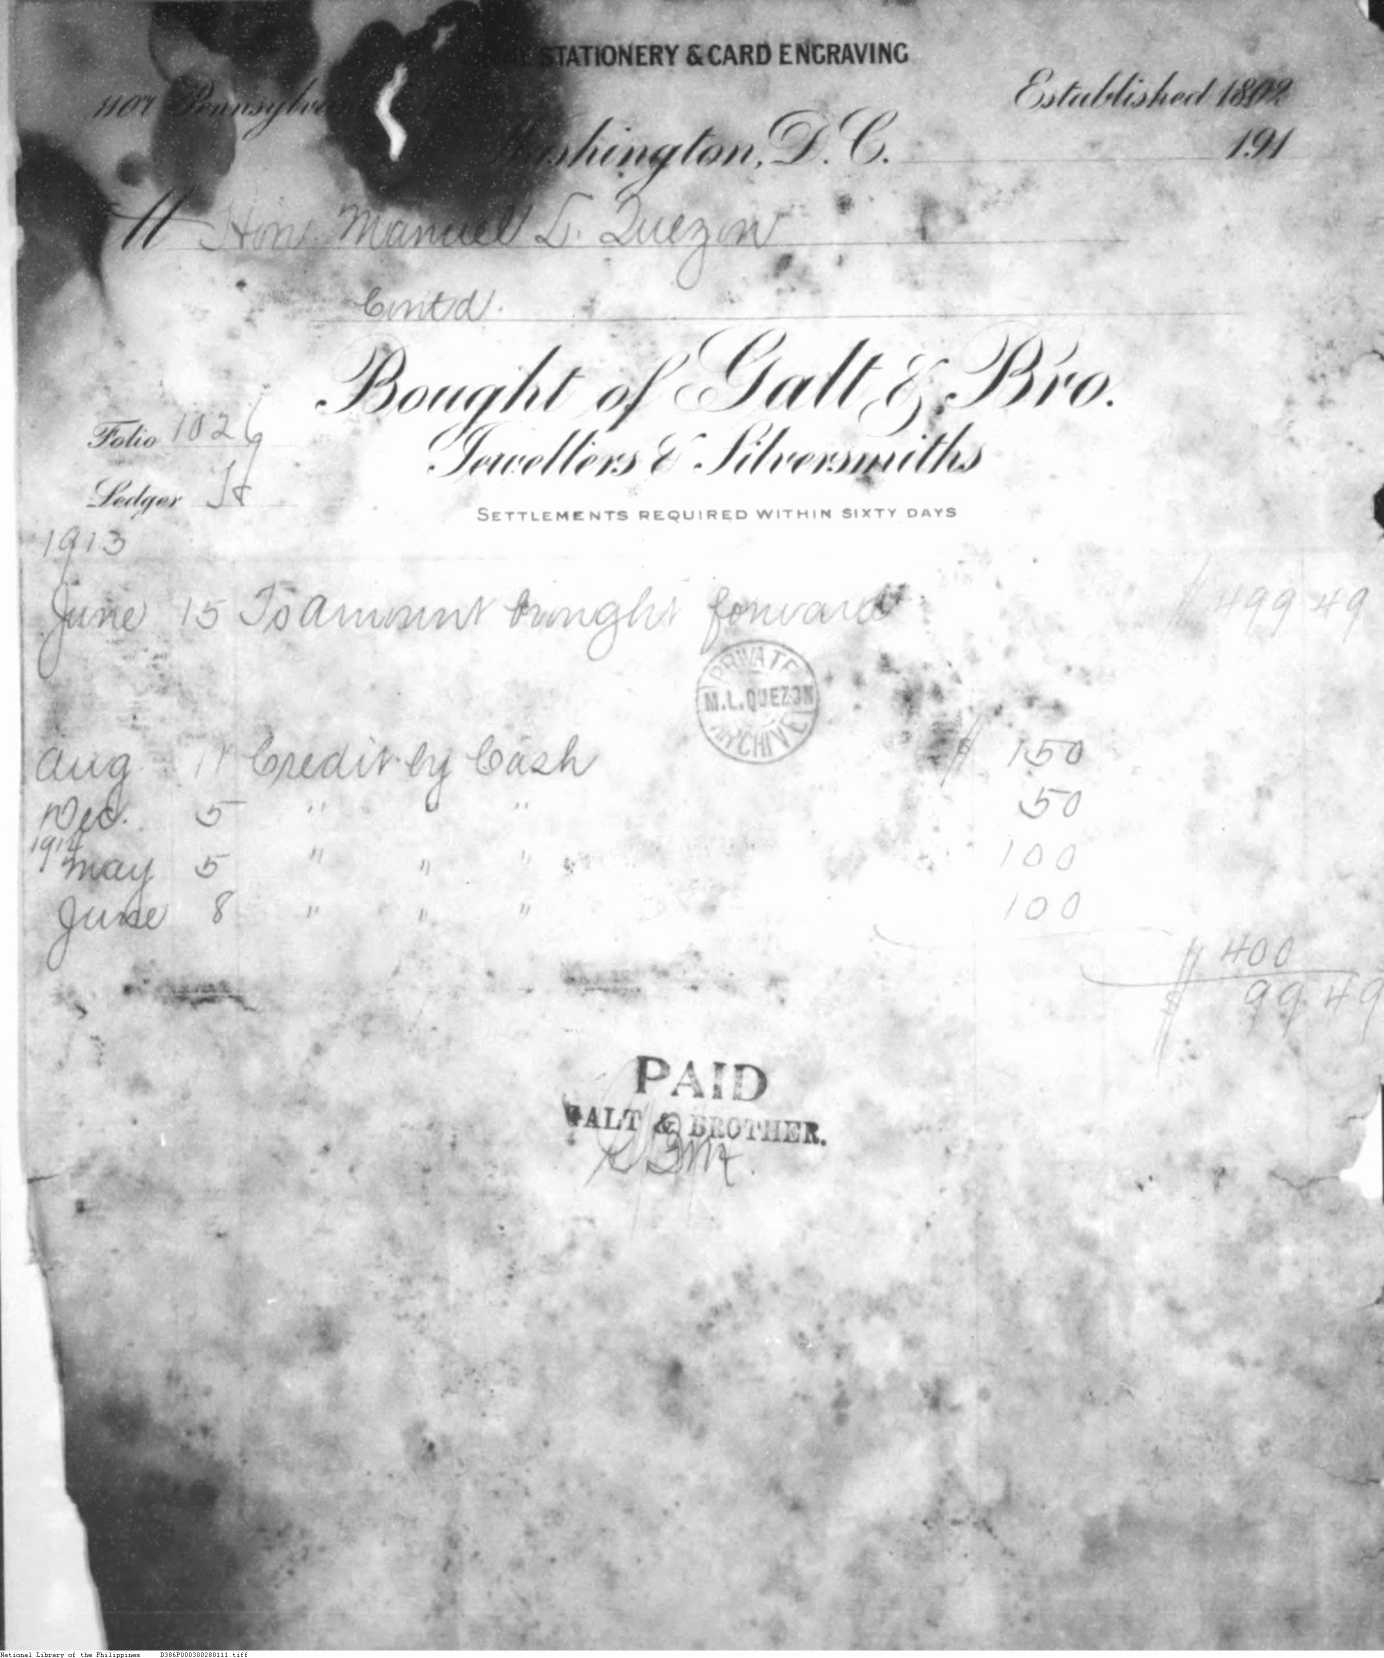 STATIONERY & CARD ENGRAVING
1107 Pennsylvania
Established 1802
Washington, D. C. 191
M Hon. Manuel L. Quezon
Cont'd.
Bought of Galt & Bro.
Jewellers & Silversmiths
Folio 1026
Ledger
SETTLEMENTS REQUIRED WITHIN SIXTY DAYS
1913
June 15 To amount brought forward $ 499 49
PRIVATE
M.L.QUEZON
ARCHIVE
Aug 11 Credit by Cash $ 150
Dec. 5 " " 50
1914
May 5 " " " 100
June 8 " " " 100
$ 400
$ 99 49
PAID
GALT & BROTHER.
National Library of the Philippines D386P000300280111.tiff